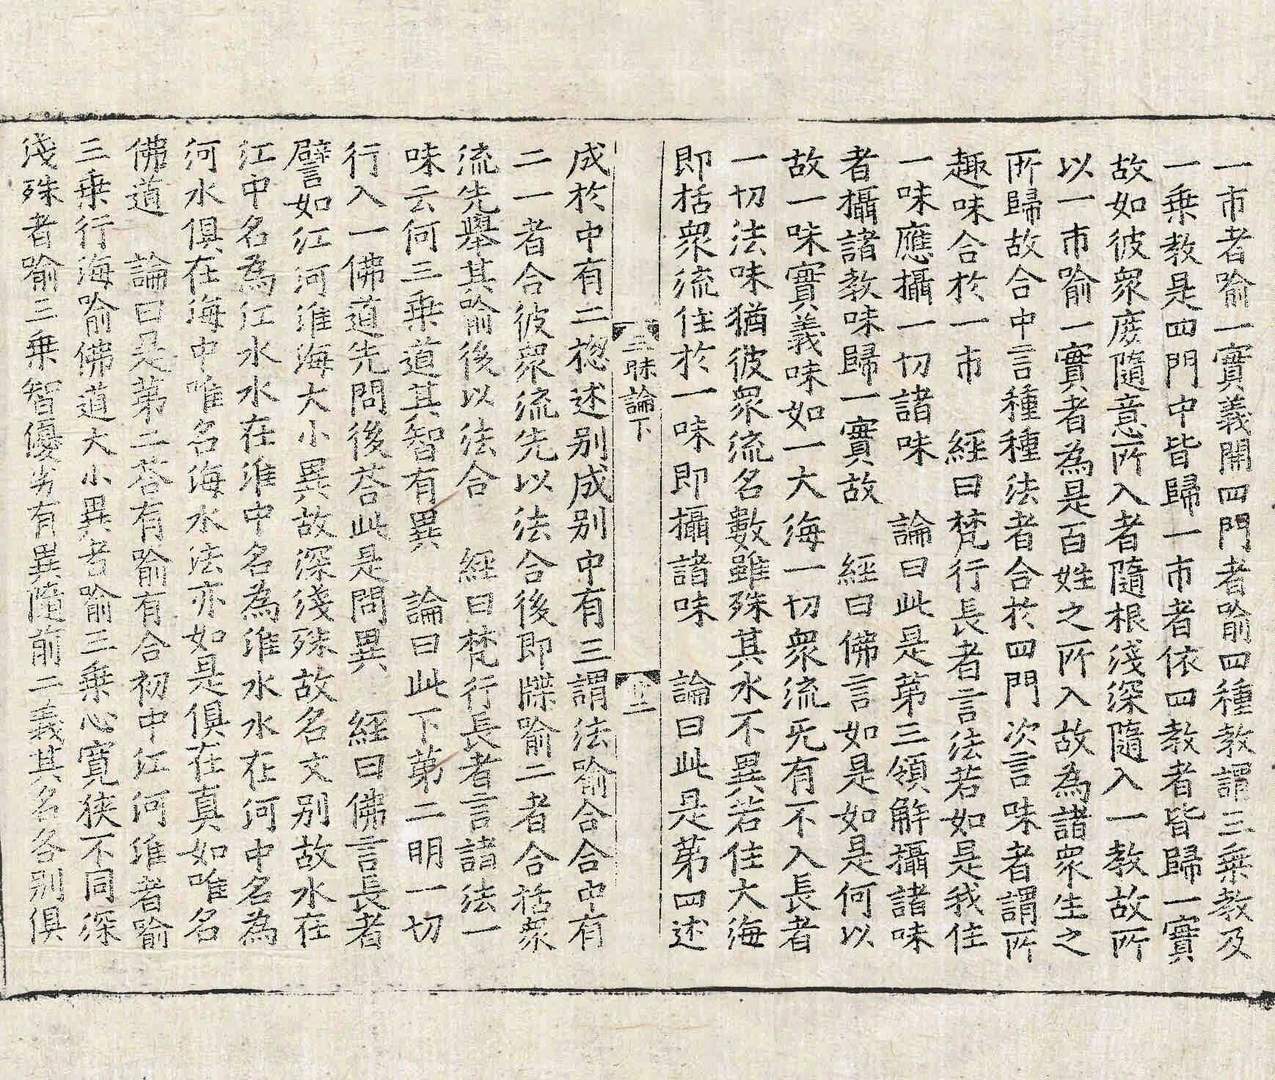 一市者喻一實義開四門者喻四種教謂三乘教及
一乘教是四門中皆歸一市者依四教者皆歸一實
故如彼衆庶隨意所入者隨根淺深隨入一教故所
以一市喻一實者為是百姓之所入故為諸衆生之
所歸故合中言種種法者合於四門次言味者謂所
趣味合於一市 經曰梵行長者言法若如是我住
一味應攝一切諸味 論曰此是第三領解攝諸味
者攝諸教味歸一實故 經曰佛言如是如是何以
故一味實義味如一大海一切衆流旡有不入長者
一切法味猶彼衆流名數雖殊其水不異若住大海
即括衆流住於一味即攝諸味 論曰此是第四述
三昧論下
成於中有二揔述別成別中有三謂法喻合合中有
二一者合彼衆流先以法合後即牒喻二者合括衆
流先舉其喻後以法合 經曰梵行長者言諸法一
味云何三乘道其智有異 論曰此下第二明一切
行入一佛道先問後荅此是問異 經曰佛言長者
譬如江河淮海大小異故深淺殊故名文別故水在
江中名為江水水在淮中名為淮水水在河中名為
河水俱在海中唯名海水法亦如是俱在真如唯名
佛道 論曰是第二荅有喻有合初中江河淮者喻
三乘行海喻佛道大小異者喻三乘心寬狹不同深
淺殊者喻三乘智優劣有異隨前二義其名各別俱